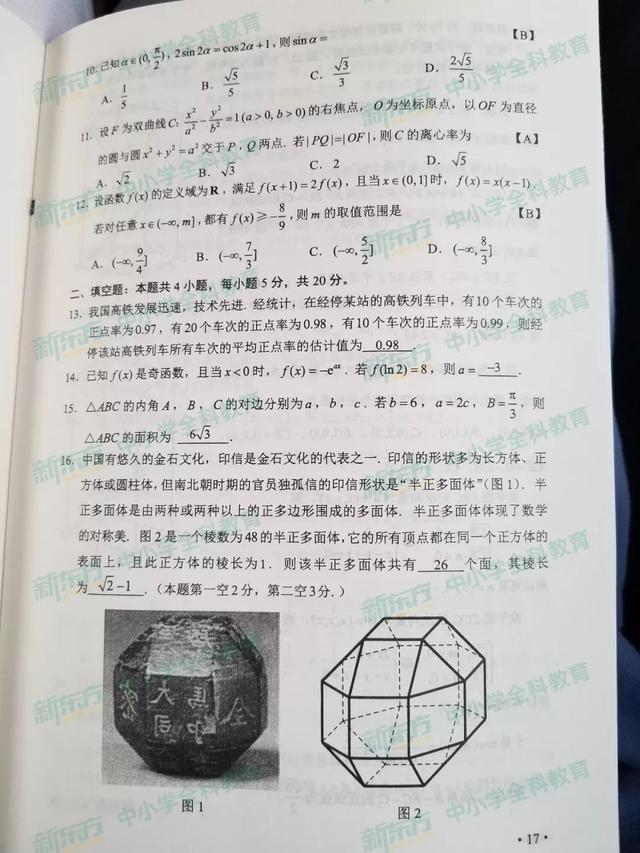 10. 已知 α∈(0, π/2), 2sin2α=cos2α+1, 则 sinα= 【B】
A. 1/5 B. √5/5 C. √3/3 D. 2√5/5
11. 设 F 为双曲线 C: x²/a² − y²/b² = 1 (a>0, b>0) 的右焦点, O 为坐标原点, 以 OF 为直径
的圆与圆 x²+y²=a² 交于 P, Q 两点. 若 |PQ|=|OF|, 则 C 的离心率为 【A】
A. √2 B. √3 C. 2 D. √5
12. 设函数 f(x) 的定义域为 R, 满足 f(x+1)=2f(x), 且当 x∈(0,1] 时, f(x)=x(x−1).
若对任意 x∈(−∞, m], 都有 f(x)≥−8/9, 则 m 的取值范围是 【B】
A. (−∞, 9/4] B. (−∞, 7/3] C. (−∞, 5/2] D. (−∞, 8/3]
二、填空题: 本题共 4 小题, 每小题 5 分, 共 20 分。
13. 我国高铁发展迅速, 技术先进. 经统计, 在经停某站的高铁列车中, 有 10 个车次的
正点率为 0.97, 有 20 个车次的正点率为 0.98, 有 10 个车次的正点率为 0.99, 则经
停该站高铁列车所有车次的平均正点率的估计值为 0.98 .
14. 已知 f(x) 是奇函数, 且当 x<0 时, f(x)=−eᵃˣ. 若 f(ln2)=8, 则 a= −3 .
15. △ABC 的内角 A, B, C 的对边分别为 a, b, c. 若 b=6, a=2c, B=π/3, 则
△ABC 的面积为 6√3 .
16. 中国有悠久的金石文化, 印信是金石文化的代表之一. 印信的形状多为长方体、正
方体或圆柱体, 但南北朝时期的官员独孤信的印信形状是“半正多面体”(图 1). 半
正多面体是由两种或两种以上的正多边形围成的多面体. 半正多面体体现了数学
的对称美. 图 2 是一个棱数为 48 的半正多面体, 它的所有顶点都在同一个正方体的
表面上, 且此正方体的棱长为 1. 则该半正多面体共有 26 个面, 其棱长
为 √2−1 . (本题第一空 2 分, 第二空 3 分.)
大 馬
司 印
图 1 图 2
·17·
新东方 中小学全科教育